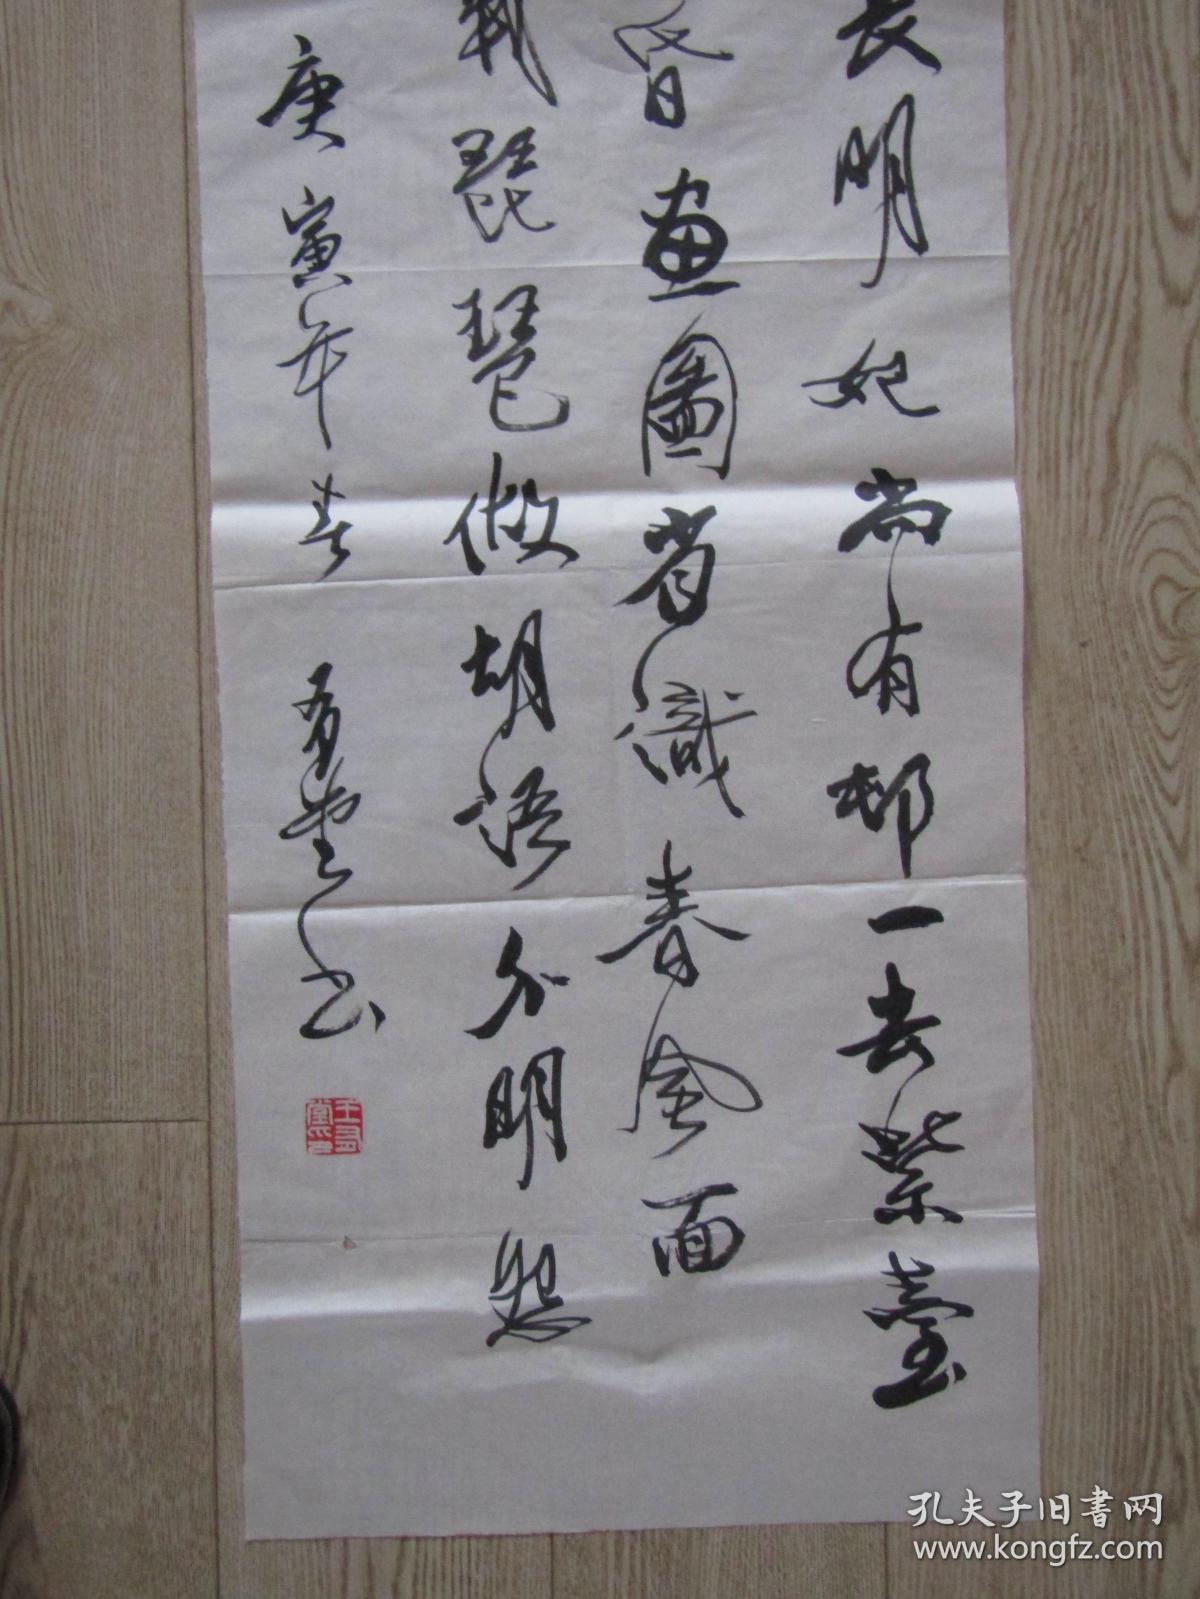 長明妃尚有邨一去紫臺
昏画圖省識春風面
載琵琶做胡語分明怨
庚寅年春 有堂书
王有堂印
孔夫子旧書网
www.kongfz.com